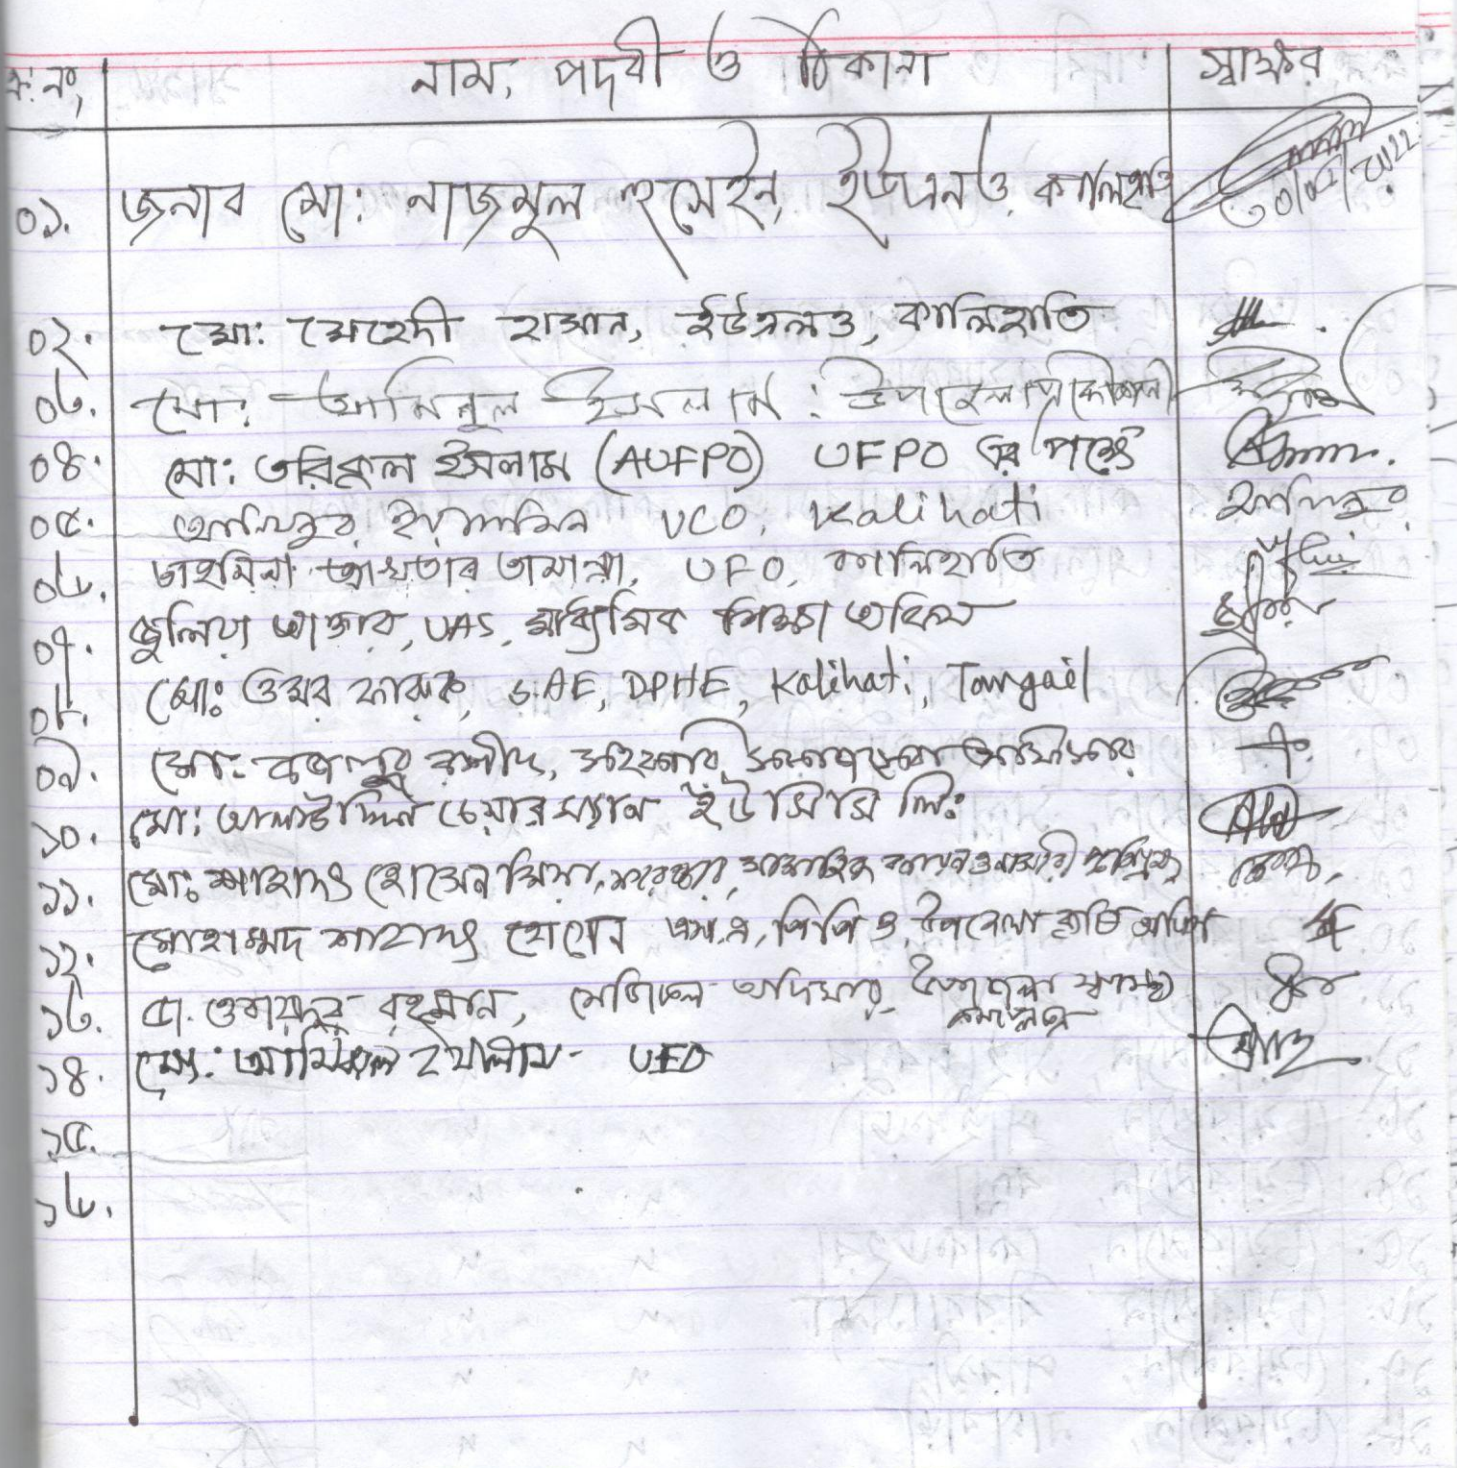 ক্র: নং, নাম, পদবী ও ঠিকানা স্বাক্ষর
০১. জনাব মো: নাজমুল হুসেইন, ইউএনও, কালিহাতি ৩০/০৫/২০২২
০২. মো: মেহেদী হাসান, ইউএলও, কালিহাতি
০৩. মো: আমিনুল ইসলাম : উপজেলা প্রকৌশলী
০৪. মো: তরিকুল ইসলাম (AUFPO) UFPO এর পক্ষে
০৫. UCO, Kalihati
০৬. তাহমিনা আখতার তামান্না, UFO, কালিহাতি
০৭. জুলিয়া আক্তার, UAS, মাধ্যমিক শিক্ষা অফিস
০৮. মোঃ ওমর ফারুক, SAE, DPHE, Kalihati, Tangail
০৯. মো: বজলুর রশীদ, সহকারি সমাজসেবা অফিসার
১০. মো: আলাউদ্দিন চেয়ারম্যান ইউসিসি লিঃ
১১. মোঃ শাহাদৎ হোসেন মিয়া,
১২. মোহাম্মদ শাহাদৎ হোসেন এস.এ,পিপি ও, উপজেলা কৃষি অফিস
১৩. ডা. ওবায়দুর রহমান, মেডিকেল অফিসার, উপজেলা স্বাস্থ্য
কমপ্লেক্স
১৪. মো: UFO
১৫.
১৬.